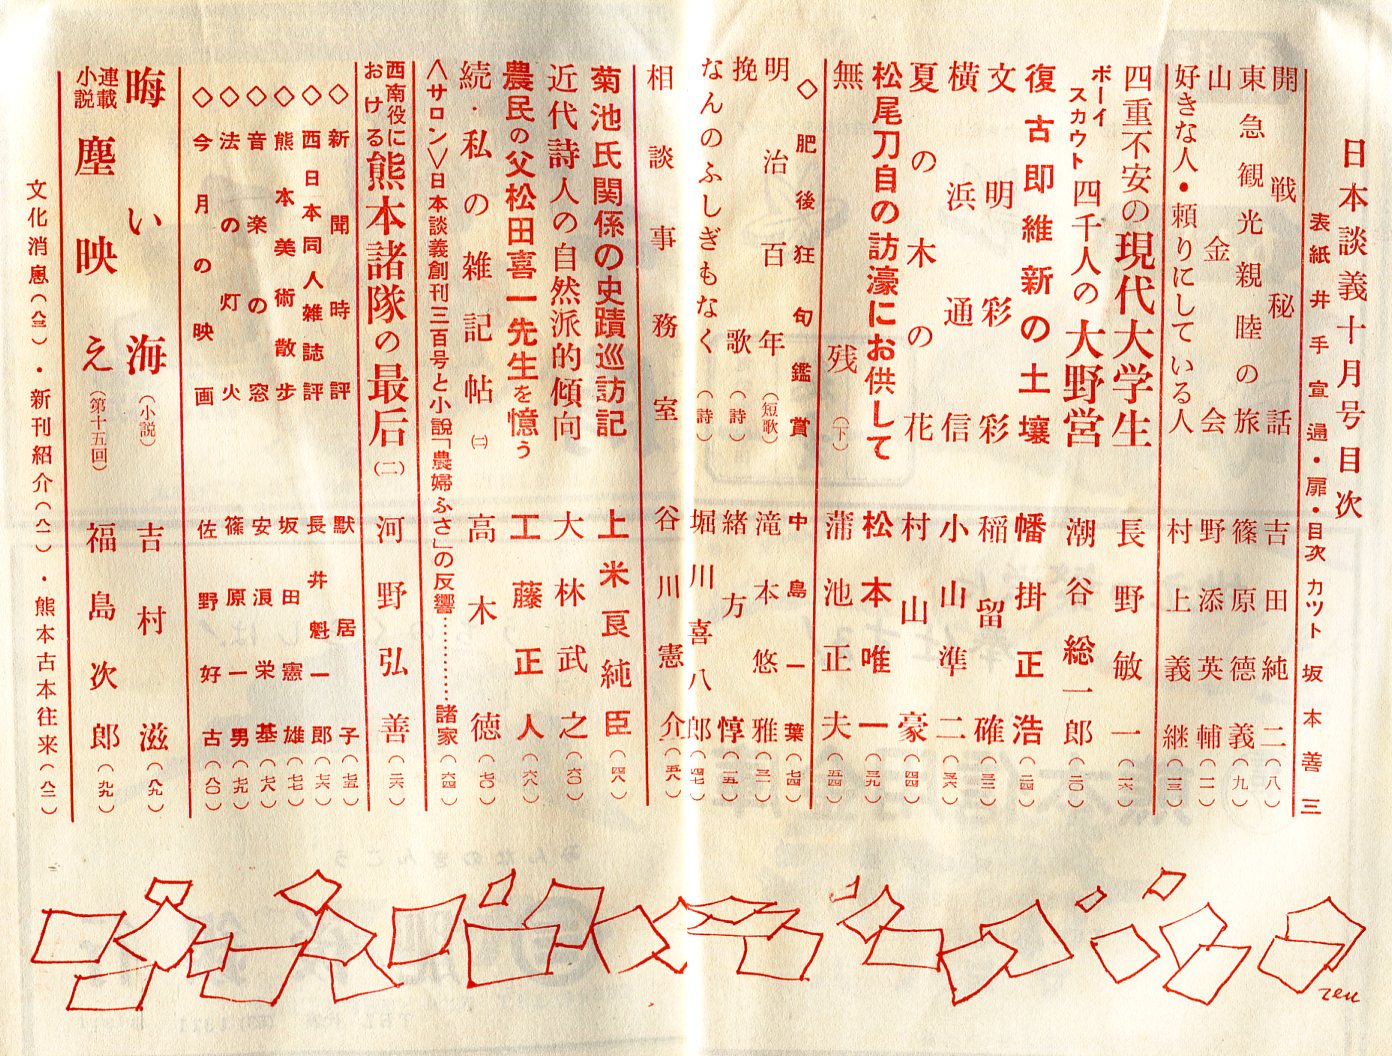 日本談義十月号目次
表紙 井手宣通・扉・目次カット 坂本善三
開戦秘話 吉田純二(八)
東急観光親睦の旅 篠原德義(九)
山金会 野添英輔(一二)
好きな人・頼りにしている人 村上義継(一三)
四重不安の現代大学生 長野敏一(一六)
ボーイスカウト四千人の大野営 潮谷総一郎(二〇)
復古即維新の土壌 幡掛正浩(二四)
文明彩彩 稲留確(三二)
横浜通信 小山準二(三六)
夏の木の花 村山豪(四四)
松尾刀自の訪濠にお供して 松本唯一(三九)
無残(下) 蒲池正夫(五四)
◇肥後狂句鑑賞 中島一葉(七四)
明治百年(短歌) 滝本悠雅(三一)
挽歌(詩) 緒方惇(一五)
なんのふしぎもなく(詩) 堀川喜八郎(四七)
相談事務室 谷川憲介(五八)
菊池氏関係の史蹟巡訪記 上米良純臣(四八)
近代詩人の自然派的傾向 大林武之(六〇)
農民の父松田喜一先生を憶う 工藤正人(六八)
続・私の雑記帖(二) 高木徳(七〇)
〈サロン〉日本談義創刊三百号と小説「農婦ふさ」の反響…………諸家(六四)
西南役における熊本諸隊の最后(二) 河野弘善(二六)
◇新聞時評 黙居子(七五)
◇西日本同人雑誌評 長井魁一郎(七六)
◇熊本美術散歩 坂田憲雄(七七)
◇音楽の窓 安浪栄基(七八)
◇法の灯火 篠原一男(七九)
◇今月の映画 佐野好古(八〇)
晦い海(小説) 吉村滋(八九)
連載小説 塵映え(第十五回) 福島次郎(九九)
文化消息(八三)・新刊紹介(八一)・熊本古本往来(八二)
zen